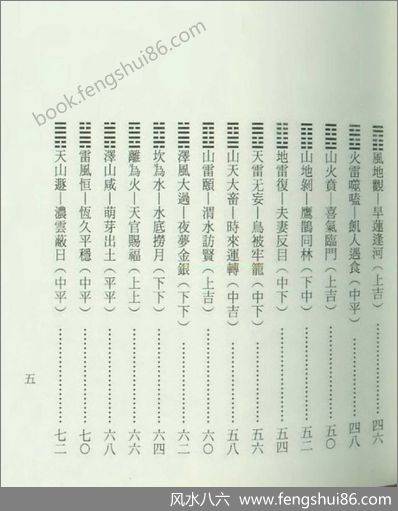 風地觀—旱蓬逢河（上吉）…………四六
火雷噬嗑—飢人遇食（中平）…………四八
山火賁—喜氣臨門（上吉）…………五〇
山地剝—鷹鵲同林（下中）…………五二
地雷復—夫妻反目（中下）…………五四
天雷无妄—鳥被牢籠（中下）…………五六
山天大畜—時來運轉（中吉）…………五八
山雷頤—渭水訪賢（上吉）…………六〇
澤風大過—夜夢金銀（下下）…………六二
坎為水—水底撈月（下下）…………六四
離為火—天官賜福（上上）…………六六
澤山咸—萌芽出土（平平）…………六八
雷風恒—恆久平穩（中平）…………七〇
天山遯—濃雲蔽日（中平）…………七二
五
book.fengshui86.com
风水八六 - www.fengshui86.com